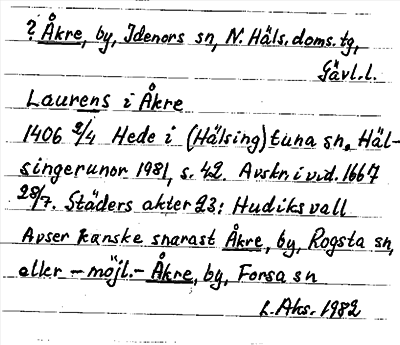 ? Åkre, by, Idenors sn, N. Häls. doms. tg,
Gävl.l.
Laurens i Åkre
1406 2/4 Hede i (Hälsing)tuna sn. Häl-
singerunor 1981, s. 42. Avskr. i vid. 1667
28/7. Städers akter 23: Hudiksvall
Avser kanske snarast Åkre, by, Rogsta sn,
eller - möjl. - Åkre, by, Forsa sn
L. Aks. 1982